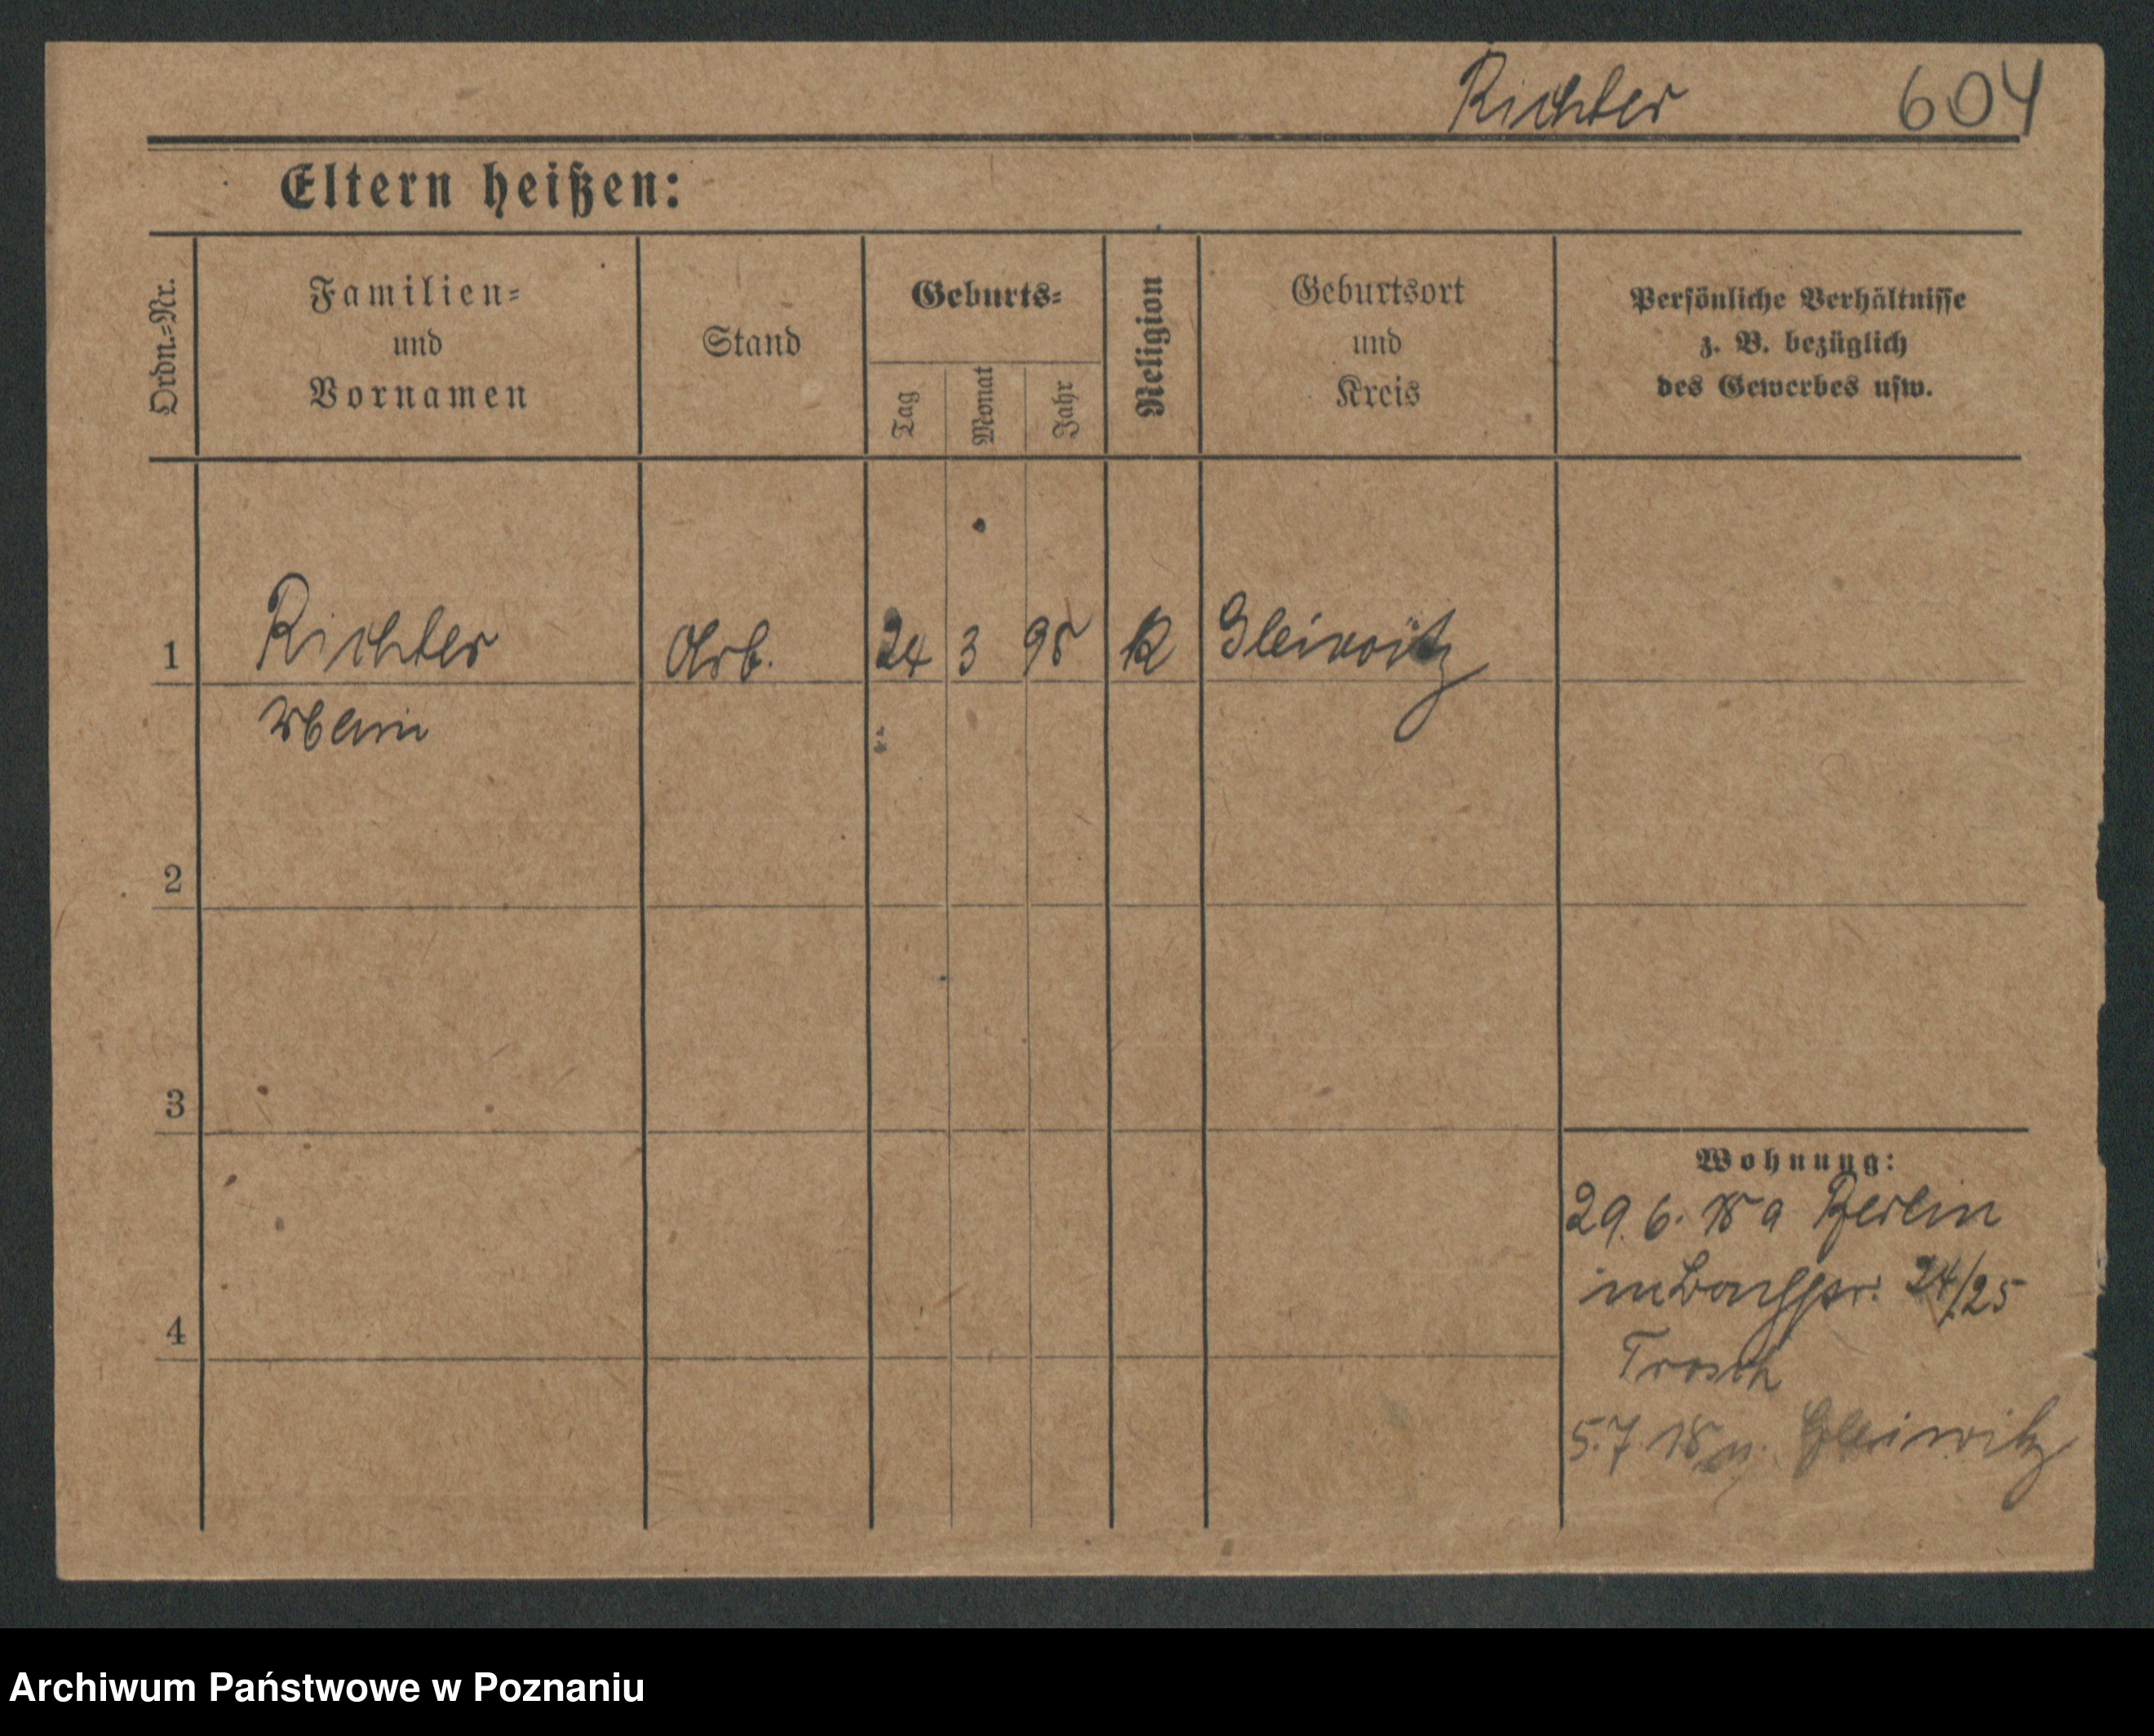 Richter 604
Eltern heißen:
Ordn.=Nr.
Familien=
und
Vornamen
Stand
Geburts=
Tag
Monat
Jahr
Religion
Geburtsort
und
Kreis
Persönliche Verhältnisse
z. B. bezüglich
des Gewerbes usw.
1 Richter Arb. 24 3 98 K Gleiwitz
2
3
4
Wohnung:
29. 6. 18 a Berlin
24/25
Trosch
5.7 18 Gleiwitz
Archiwum Państwowe w Poznaniu